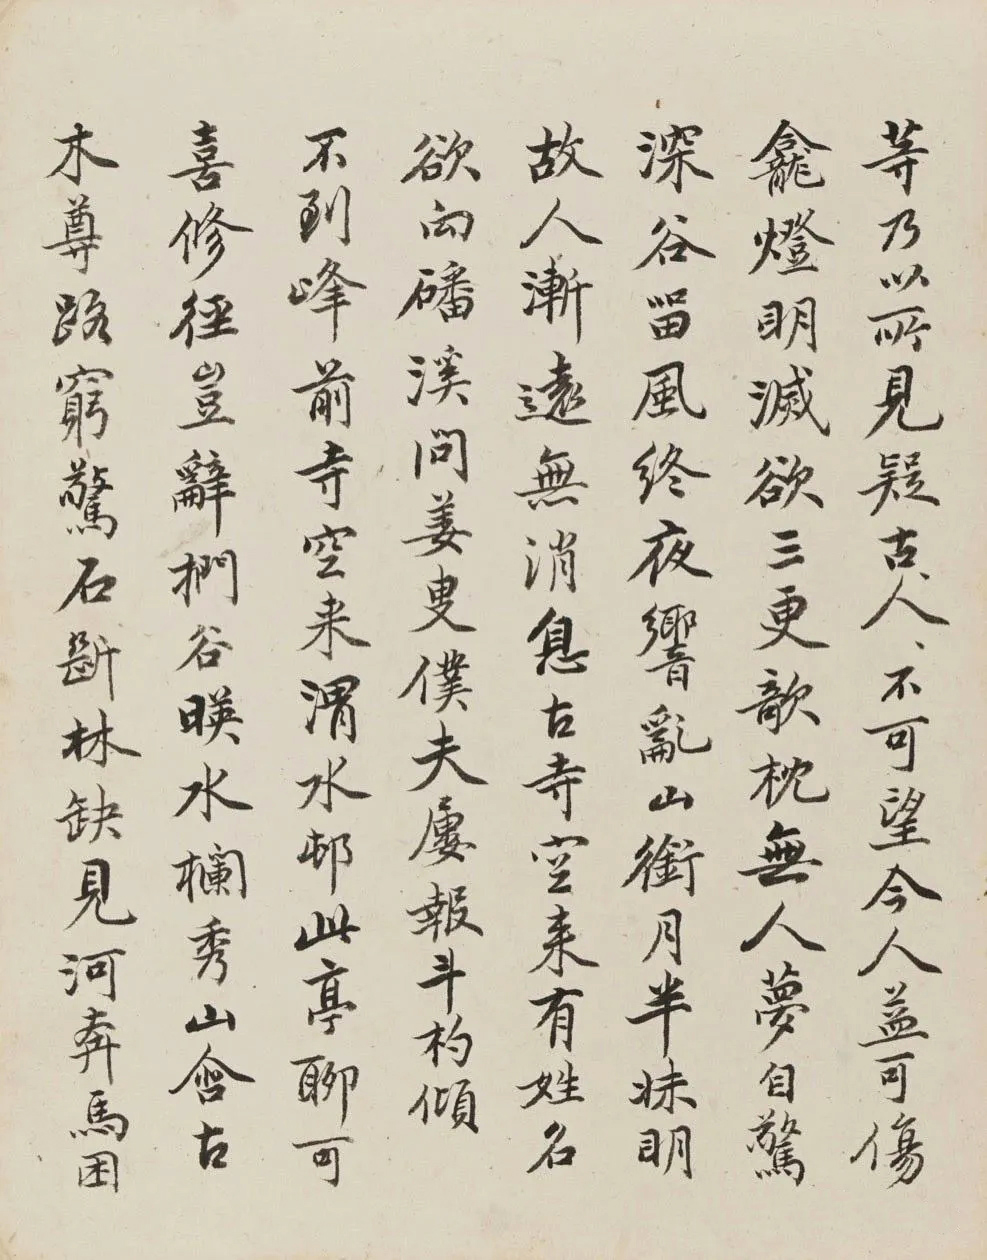 等乃以所見疑古人、不可望今人益可傷
龕燈明滅欲三更敧枕無人夢自驚
深谷留風終夜響亂山銜月半牀明
故人漸遠無消息古寺空来有姓名
欲向磻溪問姜叟僕夫屢報斗杓傾
不到峰前寺空来渭水邨此亭聊可
喜修徑豈辭捫谷暎水欄秀山含古
木尊路窮驚石斷林缺見河奔馬困